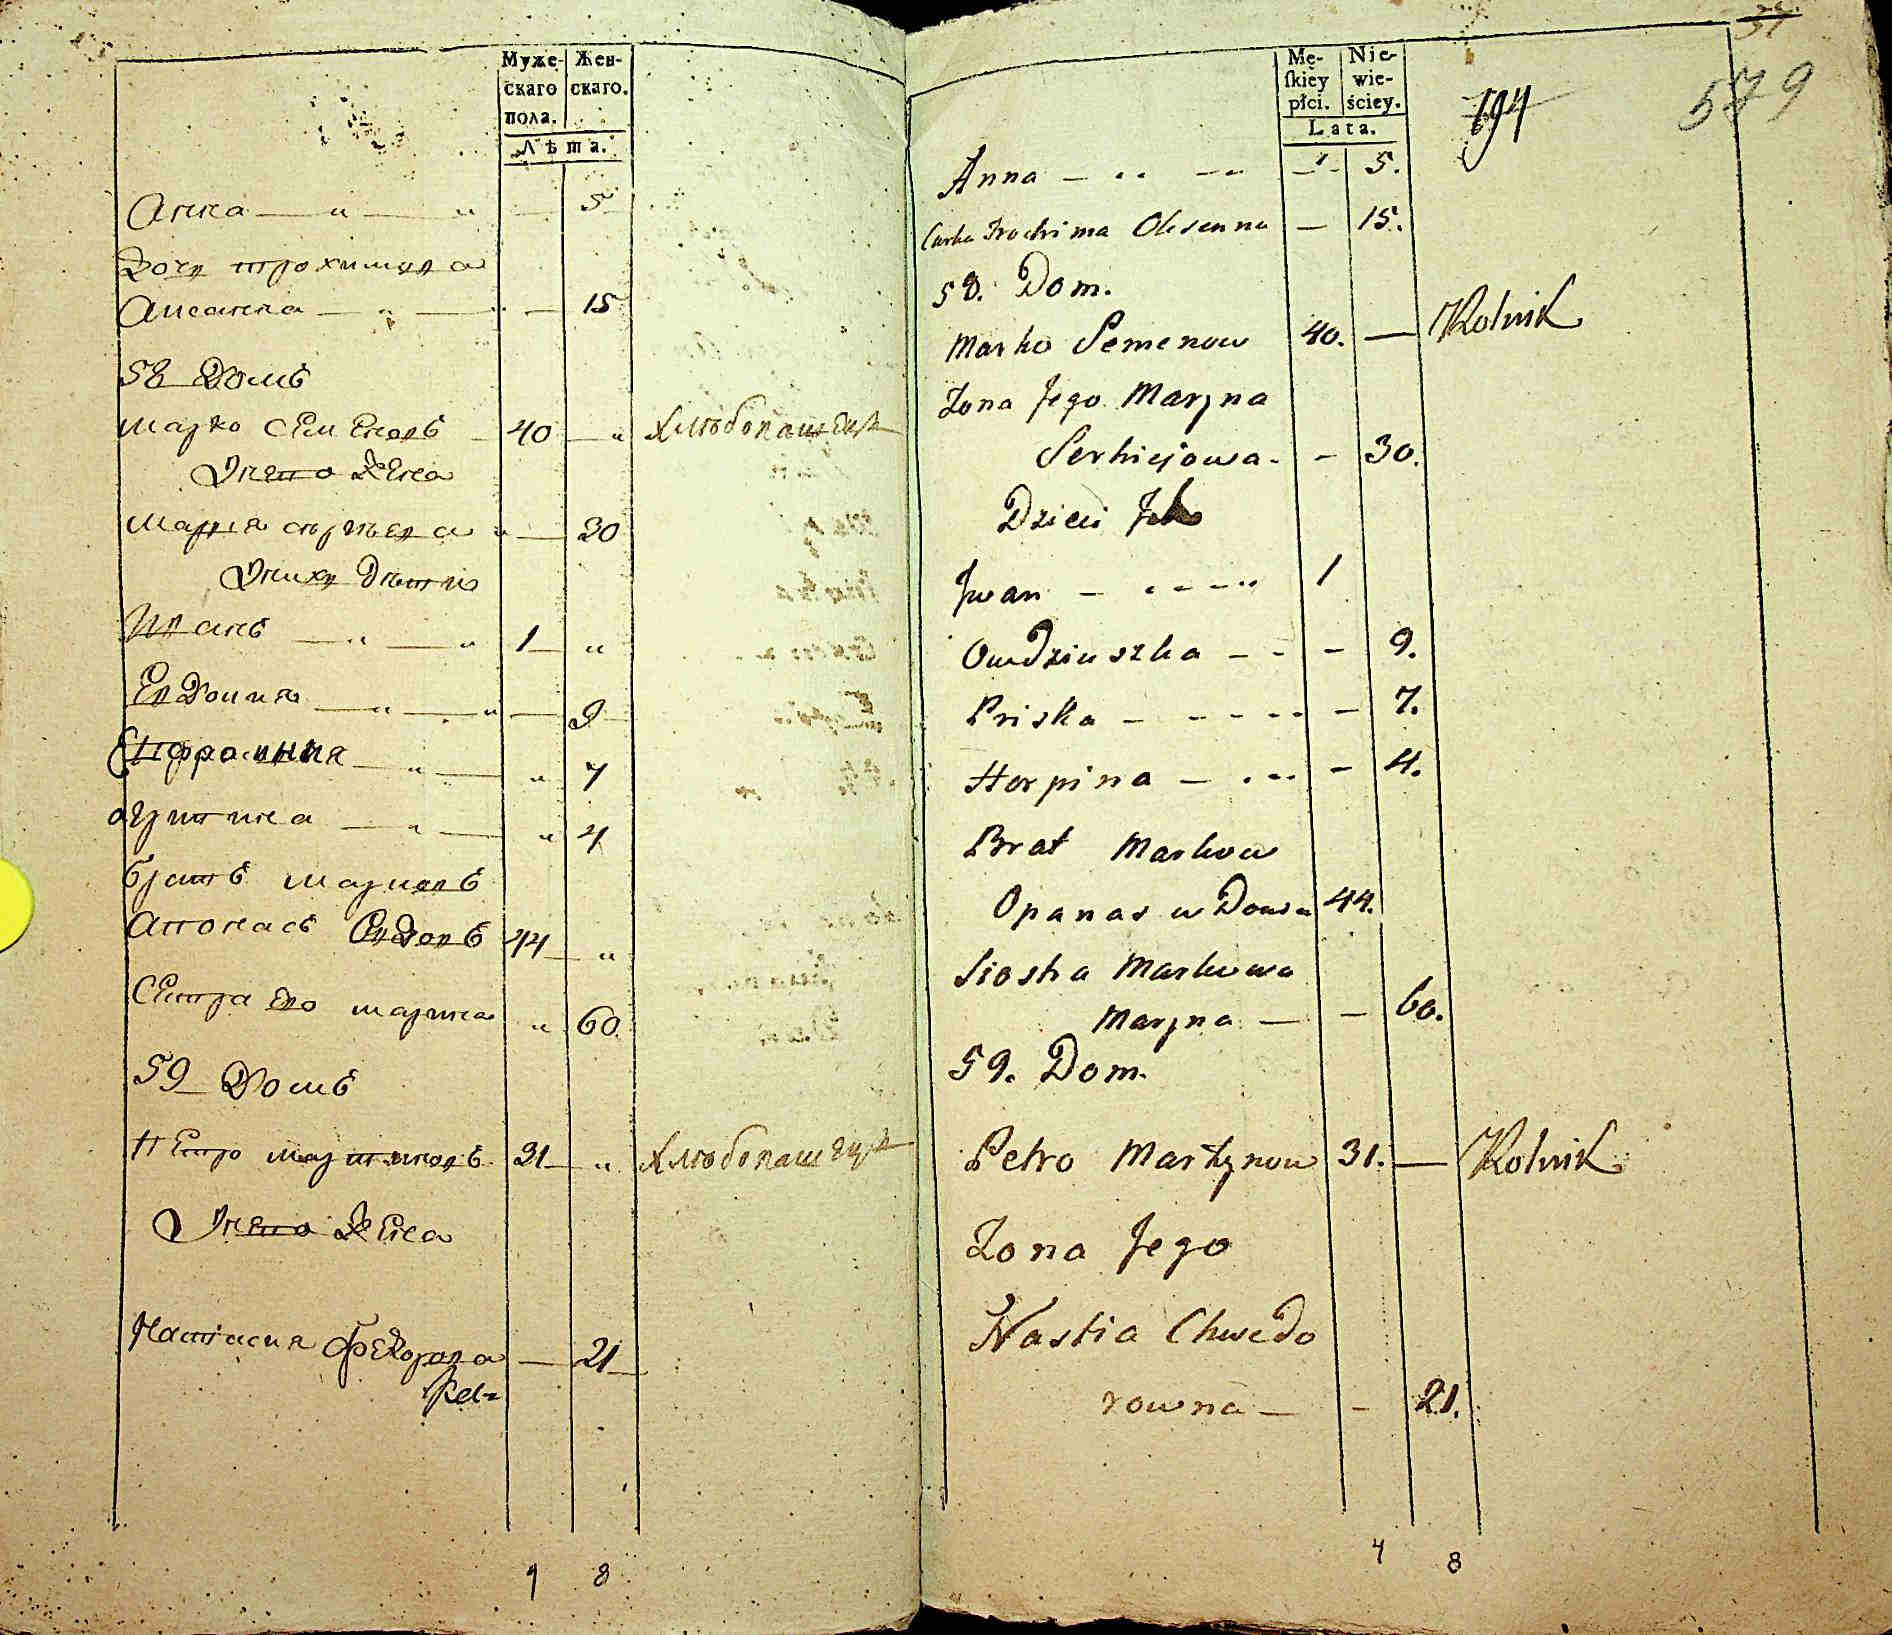 Муже-
скаго
пола.
Жен-
скаго.
Лѣта.
Анна — „ — „ — 5
Дочь трохимова
Аксанна — „ — — 15
58 Домъ
марко семеновъ 40 — „ Хлѣбопашецъ
Жена
мария „ — 30
дѣти
Иванъ — „ — „ 1 „
Евдокия — „ — „ — 9
— „ — „ 7
агрипина — „ — „ 4
братъ марковъ
Апонасъ 44 — „
Сестра его марина „ 60
59 Домъ
Петро мартиновъ 31 — „ Хлѣбопашецъ
Жена
Настасия Федорова — 21
4 8
Mę-
ſkiey
płci.
Nie-
wie-
ściey.
Lata.
194
579
Anna — 5.
Corka Trochima Oksenna — 15.
58. Dom.
Marko Semenow 40. — Rolnik
Zona Jego Maryna
Serhiejowa - - 30.
Dzieci
Jwan - 1
Owdziuszka - - - 9.
Priska - - 7.
Horpina - - 4.
Brat Markow
Opanas w Dowa 44.
Siostra Markowa
Maryna — - 60.
59. Dom.
Petro Martynow 31. — Rolnik
Zona Jego
Nastia Chwedo
rowna — - 21.
4 8